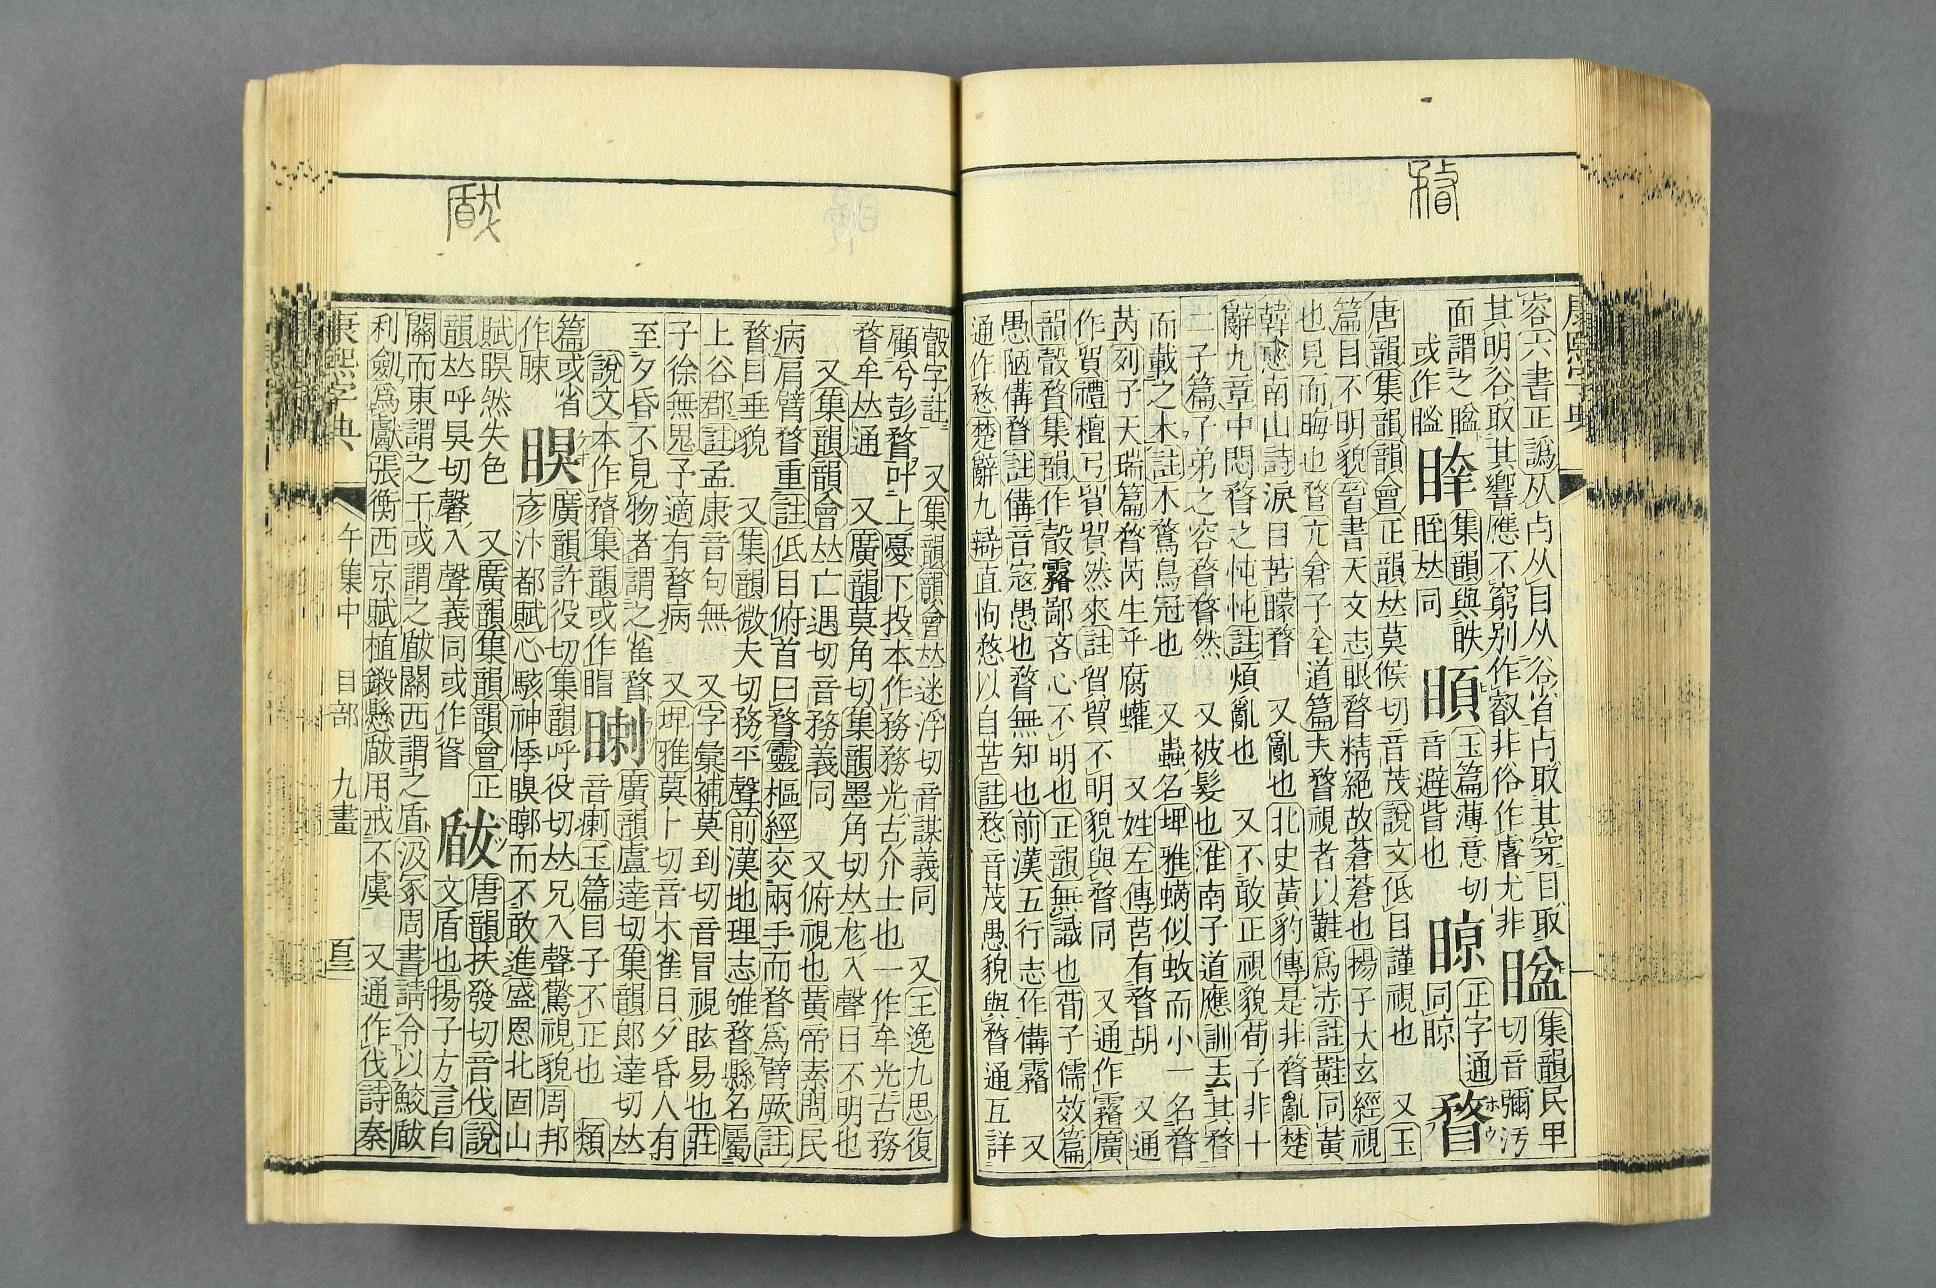 瞀
容六書正譌从占从目从谷省占取其穿目取
其明谷取其響應不窮别作叡非俗作睿尤非
𥇰
集韻民𤰞
切音彌汚
面謂之𥇰
或作𥇰
睳
集韻與眣
眰𠀤同
䀶
玉篇薄意切
音避眥也
䁁
正字通
同䁁
瞀
唐韻集韻韻會正韻𠀤莫候切音茂說文低目謹視也 又玉
篇目不明貌晉書天文志眼瞀精絕故蒼蒼也揚子太玄經視
也見而晦也瞀亢倉子全道篇夫瞀視者以黈爲赤註黈同黃
韓愈南山詩淚目苦矇瞀 又亂也北史黃豹傳是非瞀亂楚
辭九章中悶瞀之忳忳註煩亂也 又不敢正視貌荀子非十
二子篇子弟之容瞀瞀然 又被髮也淮南子道應訓王其瞀
而載之木註木鶩鳥冠也 又蟲名埤雅螨似蚊而小一名瞀
芮列子天瑞篇瞀芮生乎腐蠸 又姓左傳莒有瞀胡 又通
作貿禮檀弓貿貿然來註貿貿不明貌與瞀同 又通作霿廣
韻瞉瞀集韻作瞉霿鄙吝心不明也正韻無識也荀子儒效篇
愚陋傋瞀註傋音寇愚也瞀無知也前漢五行志作傋霿 又
通作愗楚辭九辯直怐愗以自苦註愗音茂愚貌與瞀通互詳
瞂
瞉字註 又集韻韻會𠀤迷浮切音謀義同 又王逸九思復
顧兮彭瞀叶上憂下投本作務務光古介士也一作牟光古務
瞀牟𠀤通 又廣韻莫角切集韻墨角切𠀤尨入聲目不明也
又集韻韻會𠀤亡遇切音務義同 又俯視也黃帝素問民
病肩臂瞀重註低目俯首曰瞀靈樞經交兩手而瞀爲臂厥註
瞀目垂貌 又集韻微夫切務平聲前漢地理志雊瞀縣名屬
上谷郡註孟康音句無 又字彙補莫到切音冒視眩易也莊
子徐無鬼子適有瞀病 又埤雅莫卜切音木雀目夕昏人有
至夕昏不見物者謂之雀瞀
𥇍
廣韻盧達切集韻郎達切𠀤
音瘌玉篇目子不正也 類
篇或省
作䀳
瞁
說文本作𥈅集韻或作睸
廣韻許役切集韻呼役切𠀤兄入聲驚視貌周邦
彥汴都賦心駭神悸瞁矎而不敢進盛恩北固山
賦瞁然失色 又廣韻集韻韻會正
韻𠀤呼臭切馨入聲義同或作䀗
瞂
唐韻扶發切音伐說
文盾也揚子方言自
關而東謂之干或謂之瞂關西謂之盾汲冢周書請令以鮫瞂
利劎爲獻張衡西京賦植鎩懸瞂用戒不虞 又通作伐詩秦
康熙字典
午集中
目部
九畫